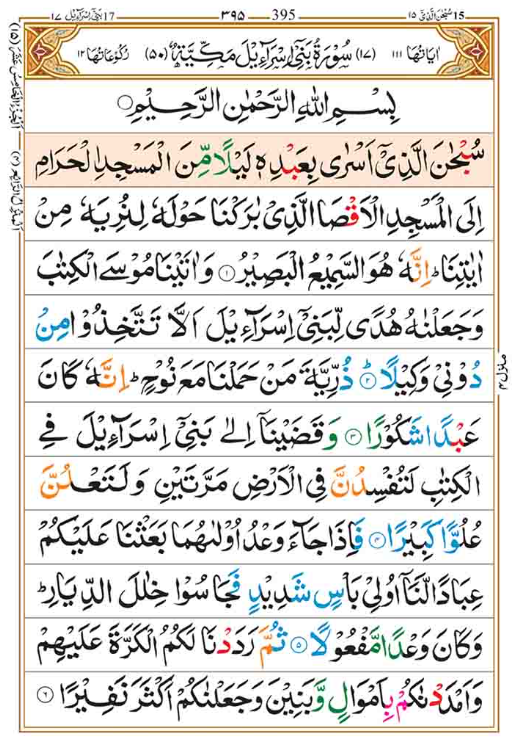 15 سُبْحٰنَ الَّذِیْٓ ١٥
395 ٣٩٥
17 بَنِیْٓ اِسْرَآءِیْل ١٧
اٰیَاتُهَا ١١١ (١٧) سُوْرَةُ بَنِیْٓ اِسْرَآءِیْلَ مَكِّیَّةٌ (٥٠) رُكُوْعَاتُهَا ١٢
بِسْمِ اللّٰهِ الرَّحْمٰنِ الرَّحِیْمِ
سُبْحٰنَ الَّذِیْٓ اَسْرٰی بِعَبْدِهٖ لَیْلًا مِّنَ الْمَسْجِدِ الْحَرَامِ
اِلَی الْمَسْجِدِ الْاَقْصَا الَّذِیْ بٰرَكْنَا حَوْلَهٗ لِنُرِیَهٗ مِنْ
اٰیٰتِنَا ؕ اِنَّهٗ هُوَ السَّمِیْعُ الْبَصِیْرُ ۝١ وَ اٰتَیْنَا مُوْسَی الْكِتٰبَ
وَ جَعَلْنٰهُ هُدًی لِّبَنِیْٓ اِسْرَآءِیْلَ اَلَّا تَتَّخِذُوْا مِنْ
دُوْنِیْ وَكِیْلًا ؕ۝٢ ذُرِّیَّةَ مَنْ حَمَلْنَا مَعَ نُوْحٍ ؕ اِنَّهٗ كَانَ
عَبْدًا شَكُوْرًا ۝٣ وَ قَضَیْنَاۤ اِلٰی بَنِیْٓ اِسْرَآءِیْلَ فِی
الْكِتٰبِ لَتُفْسِدُنَّ فِی الْاَرْضِ مَرَّتَیْنِ وَ لَتَعْلُنَّ
عُلُوًّا كَبِیْرًا ۝٤ فَاِذَا جَآءَ وَعْدُ اُوْلٰىهُمَا بَعَثْنَا عَلَیْكُمْ
عِبَادًا لَّنَاۤ اُولِیْ بَاْسٍ شَدِیْدٍ فَجَاسُوْا خِلٰلَ الدِّیَارِ ؕ
وَ كَانَ وَعْدًا مَّفْعُوْلًا ۝٥ ثُمَّ رَدَدْنَا لَكُمُ الْكَرَّةَ عَلَیْهِمْ
وَ اَمْدَدْنٰكُمْ بِاَمْوَالٍ وَّ بَنِیْنَ وَ جَعَلْنٰكُمْ اَكْثَرَ نَفِیْرًا ۝٦
منزل ٤